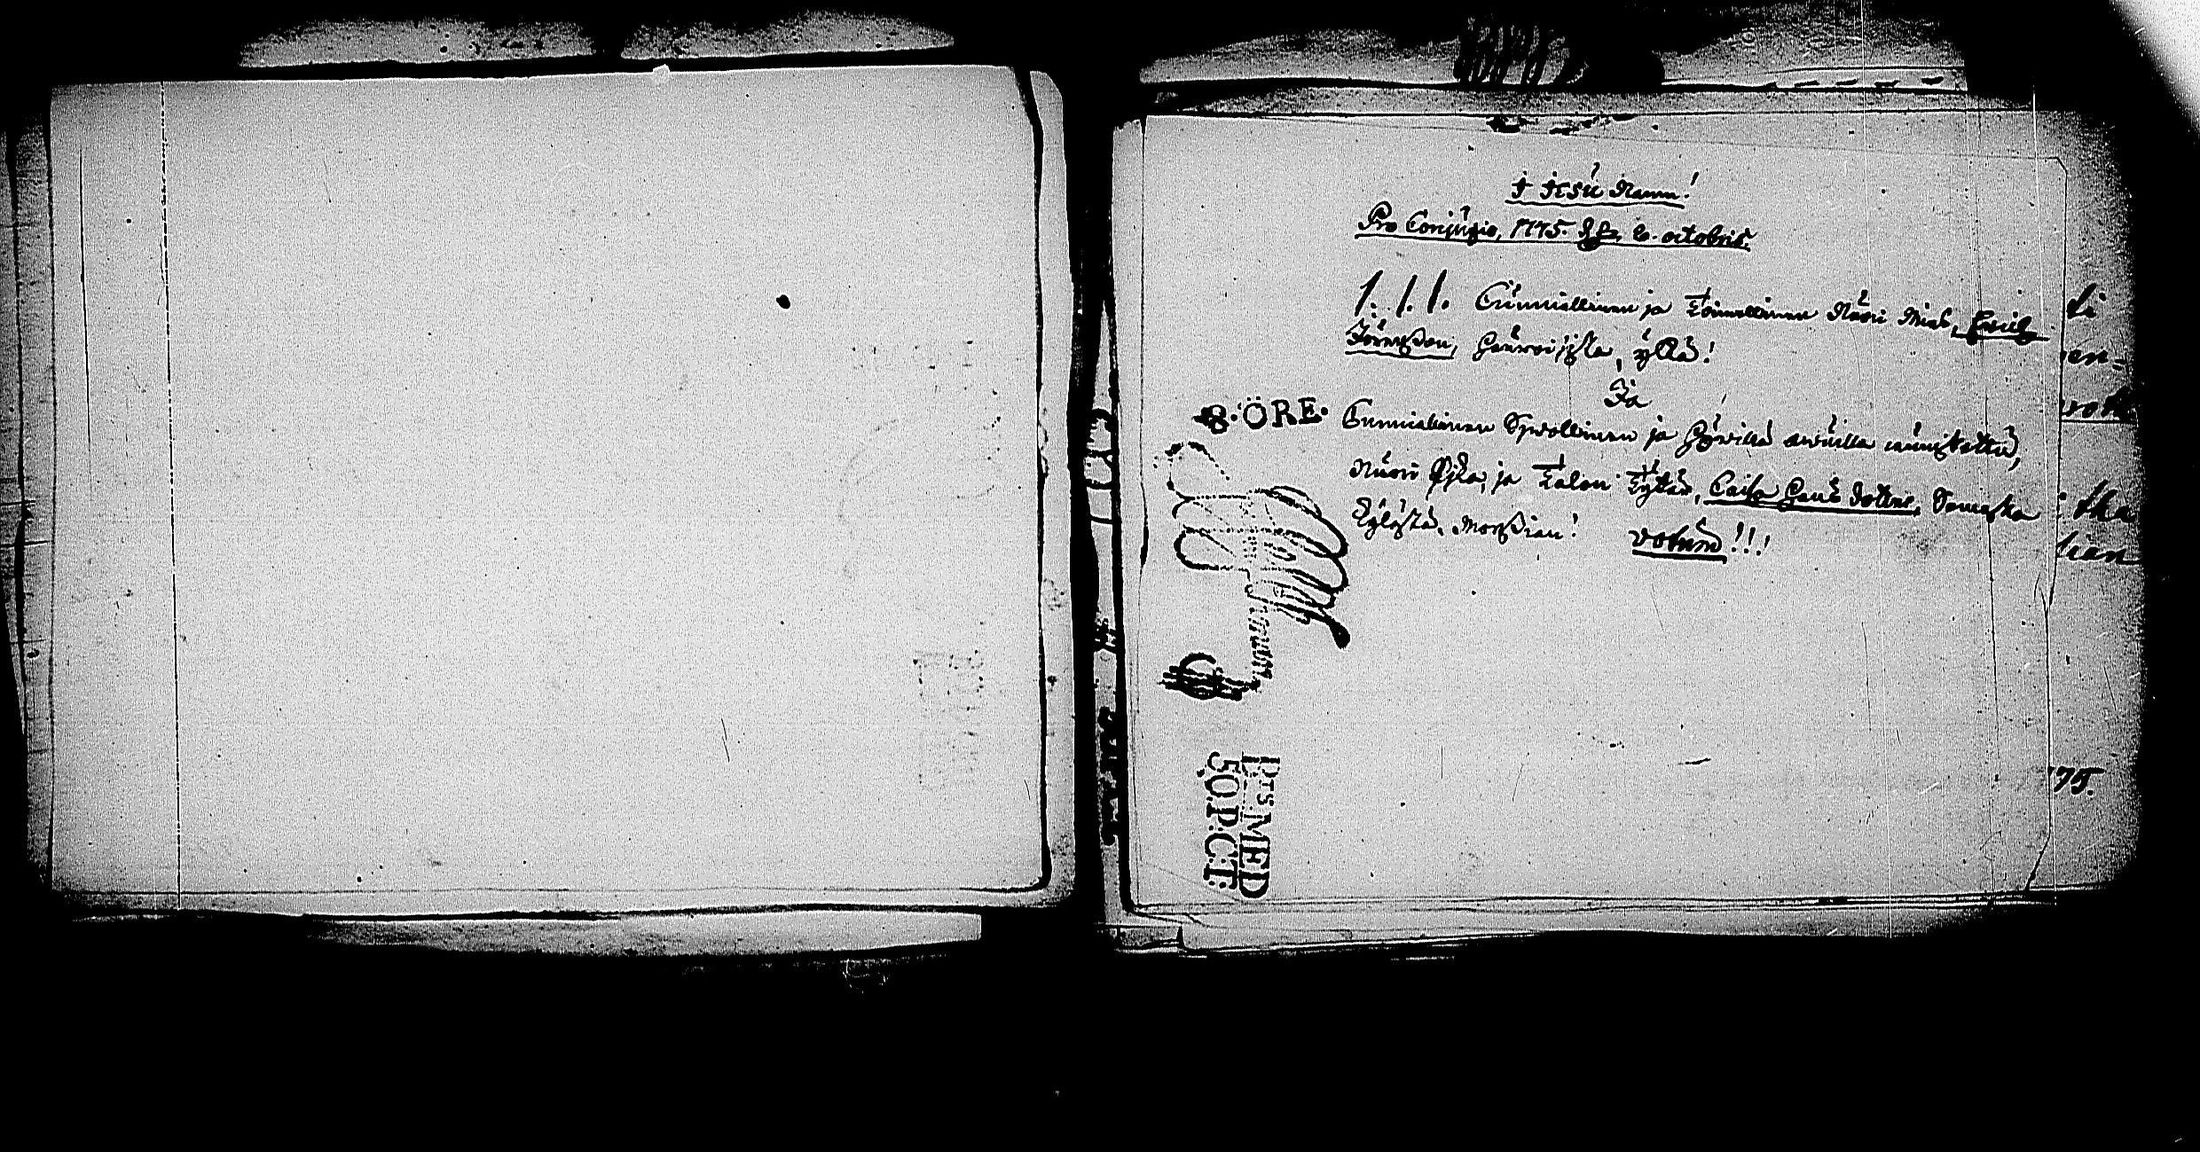 I JESU Namn!
Pro Conjugio, 1775. d. 8. octobris.
1. 1. 1. Cunniallinen ja Toimellinen Nuori Mies, Eric
Jöransson, Hauroisista, ylkä!
Ja
8. ÖRE. Cunniallinen Sywollinen ja hywillä awuilla caunistettu,
Nuori Pijka, ja Talon Tytär, Caisa dotter, Samasta
Kylästä, Morsian! votum!!!
PTS MED
50.P:C:T:
75.